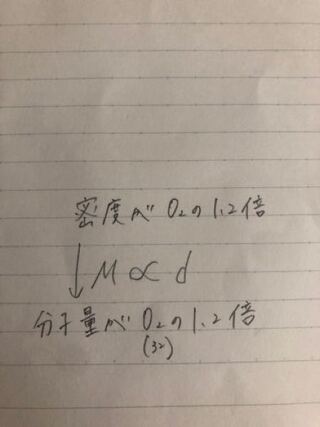 密度が O₂の1.2倍
↓ M ∝ d
分子量が O₂の1.2倍
(32)